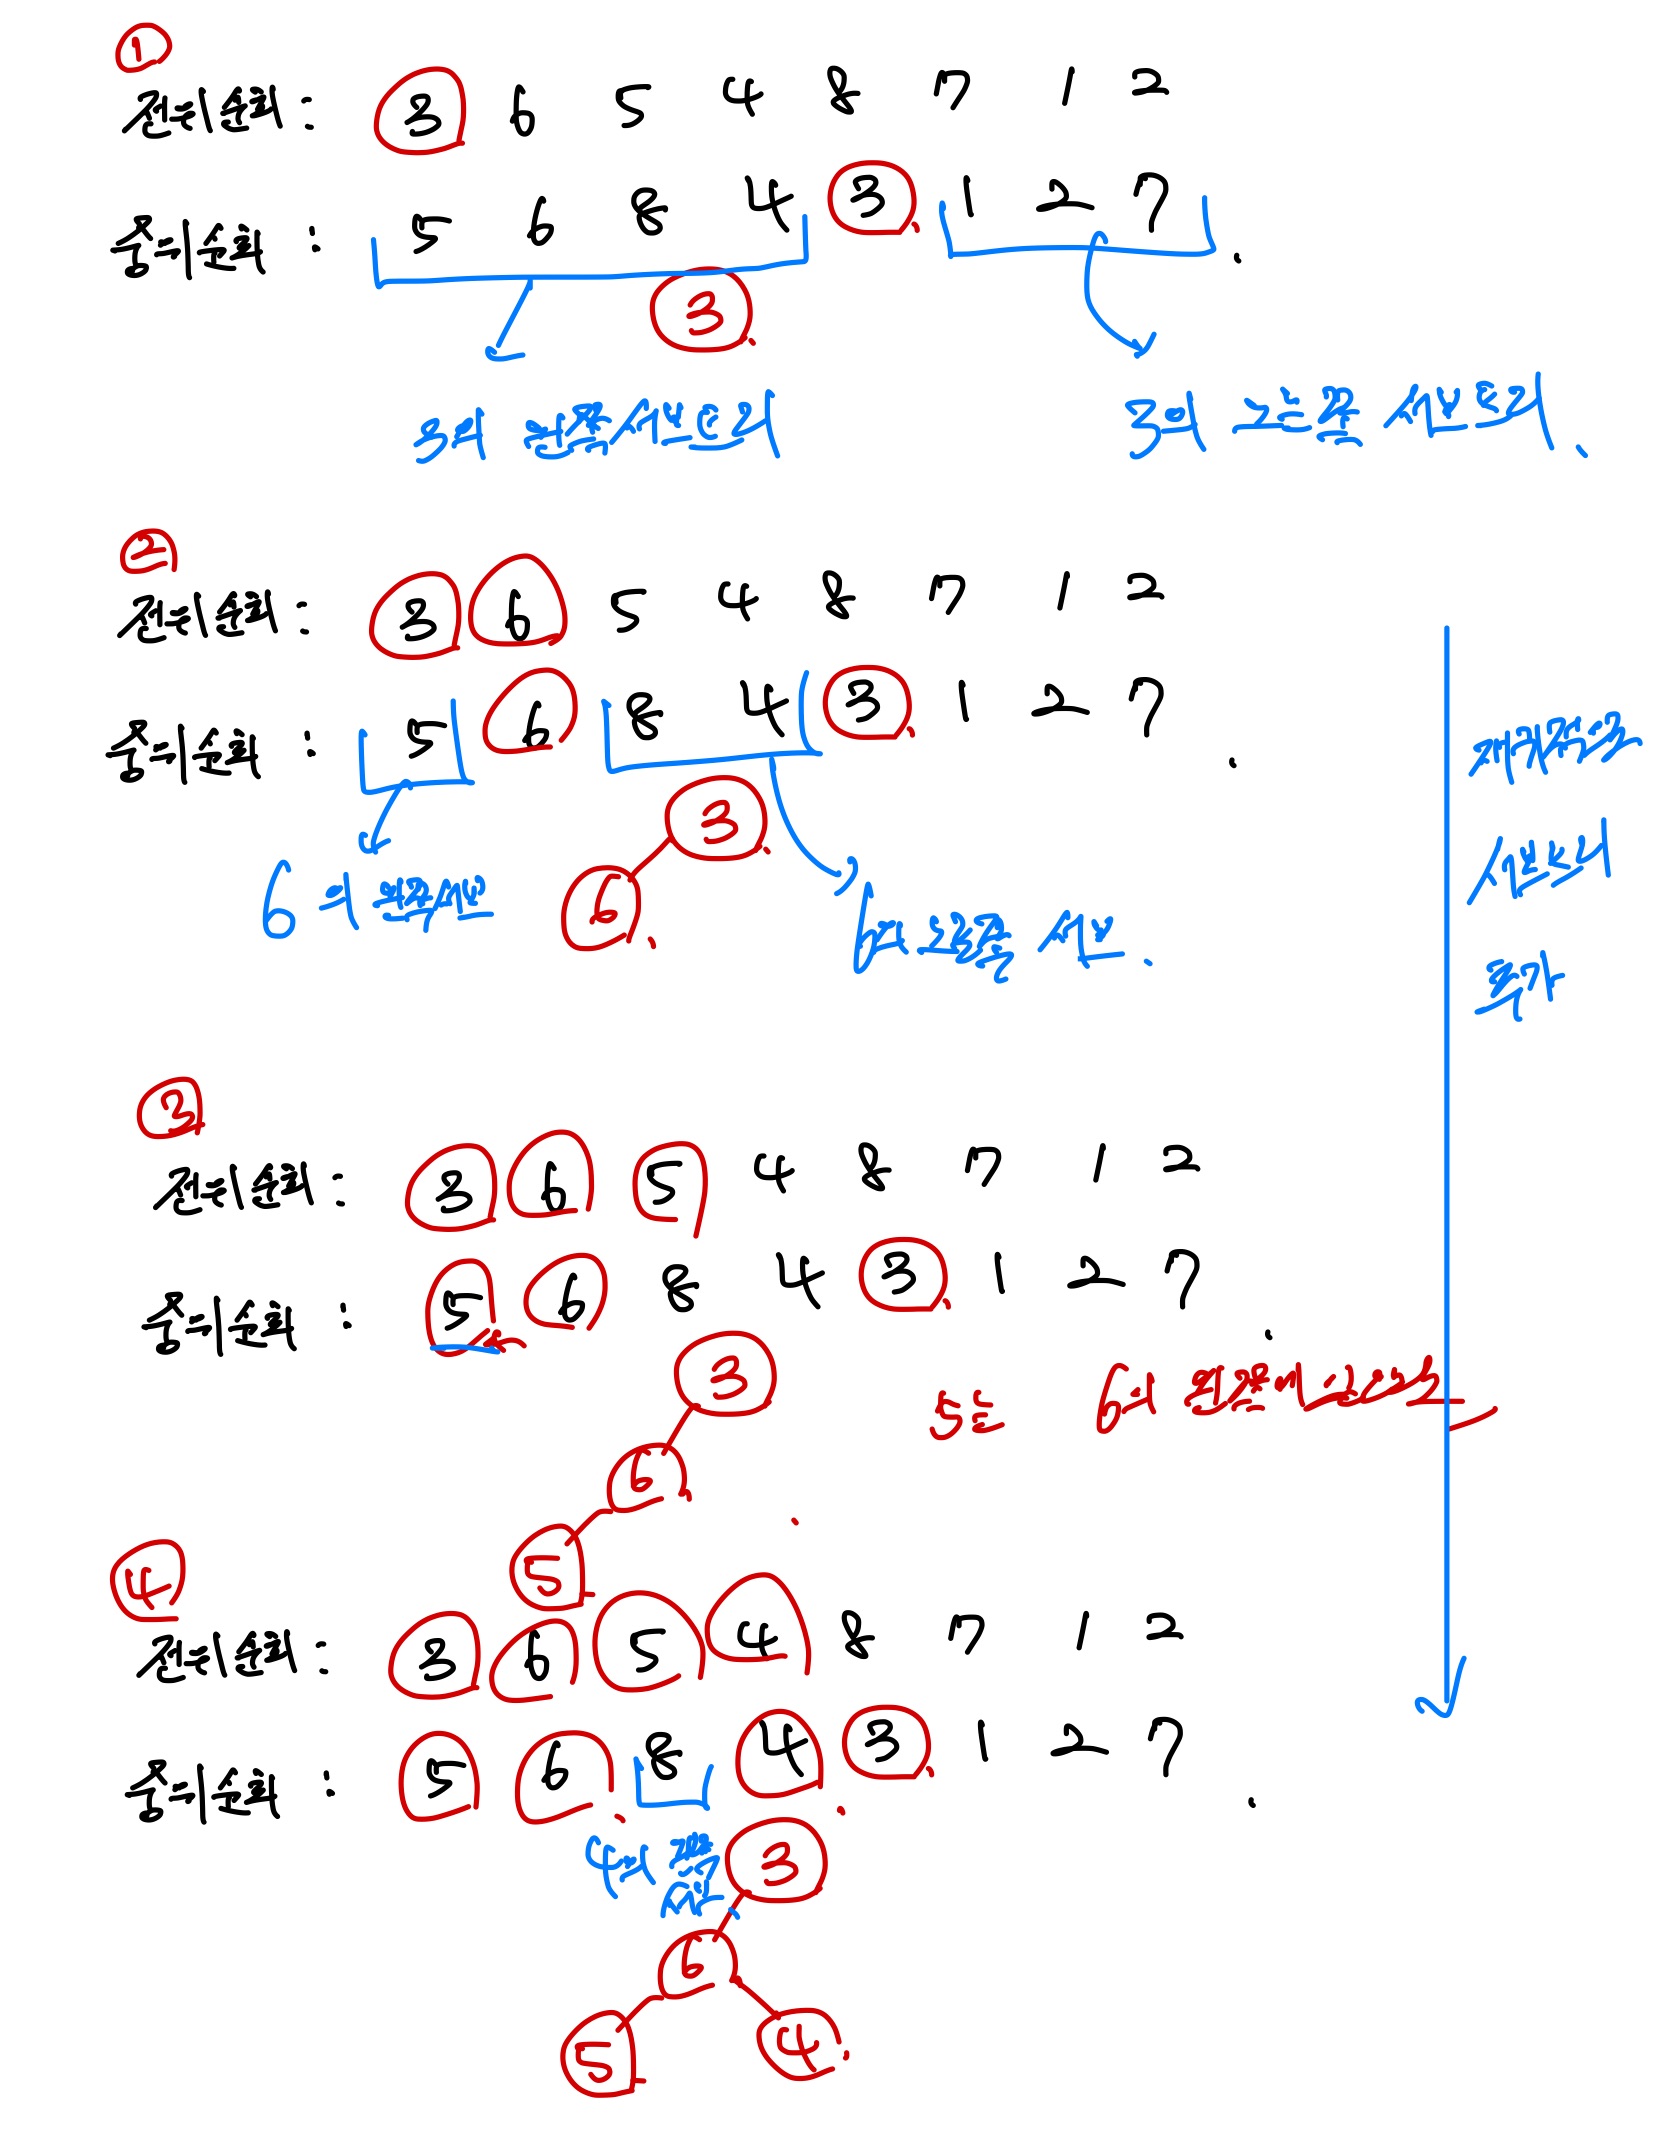 ①
전위순회 : 3 6 5 4 8 7 1 2
중위순회 : 5 6 8 4 3 1 2 7
3
3의 왼쪽 서브트리
3의 오른쪽 서브트리
②
전위순회 : 3 6 5 4 8 7 1 2
중위순회 : 5 6 8 4 3 1 2 7
재귀적으로
서브트리
추가
3
6의 왼쪽 서브
6
6의 오른쪽 서브
③
전위순회 : 3 6 5 4 8 7 1 2
중위순회 : 5 6 8 4 3 1 2 7
3
5는 6의 왼쪽에
6
5
④
전위순회 : 3 6 5 4 8 7 1 2
중위순회 : 5 6 8 4 3 1 2 7
4의 왼쪽
서브
3
6
5 4